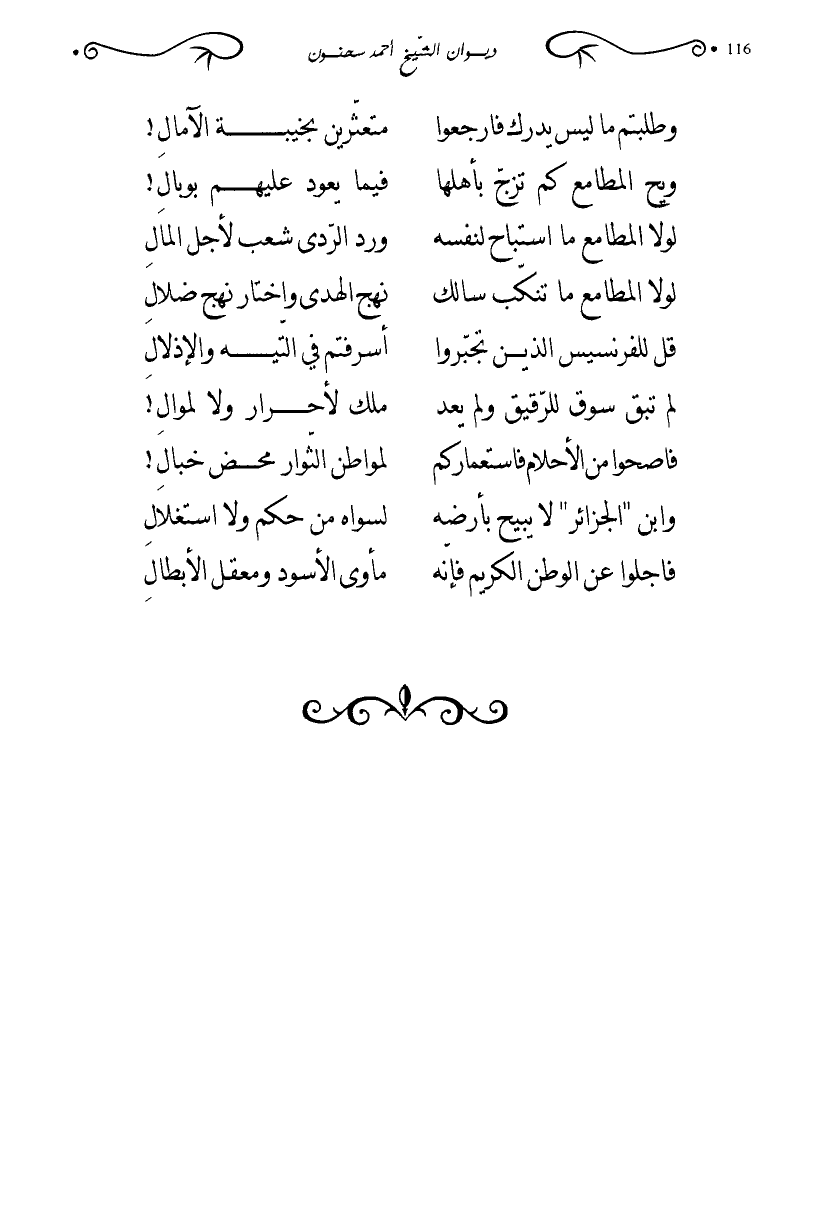 116 ديوان الشّيخ أحمد سحنون
وطلبتم ما ليس يدرك فارجعوا متعثّرين بخيبة الآمالِ!
ويح المطامع كم تزجّ بأهلها فيما يعود عليهم بوبالِ!
لولا المطامع ما استباح لنفسه ورد الرّدى شعب لأجل المالِ
لولا المطامع ما تنكّب سالك نهج الهدى واختار نهج ضلالِ
قل للفرنسيس الذين تجبّروا أسرفتم في التّيه والإذلالِ
لم تبق سوق للرّقيق ولم يعد ملك لأحرار ولا لموالِ!
فاصحوا من الأحلام فاستعماركم لمواطن الثّوار محض خبالِ!
وابن "الجزائر" لا يبيح بأرضه لسواه من حكم ولا استغلالِ
فاجلوا عن الوطن الكريم فإنّه مأوى الأسود ومعقل الأبطالِ